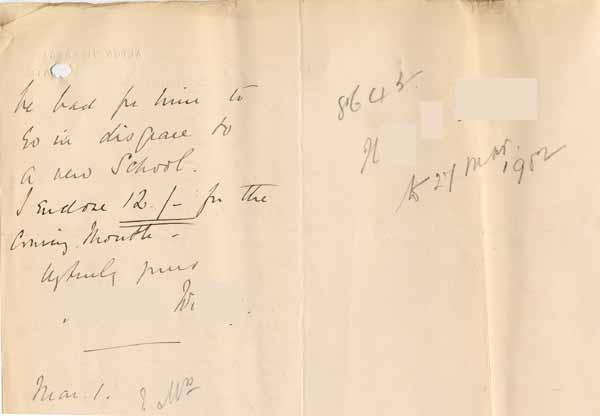 be bad for him to
go in disgrace to
a new School.
I enclose 12./- for the
Coming Month -
truly yours
Mar. 1.
8643.
to 27 Mar.
1902